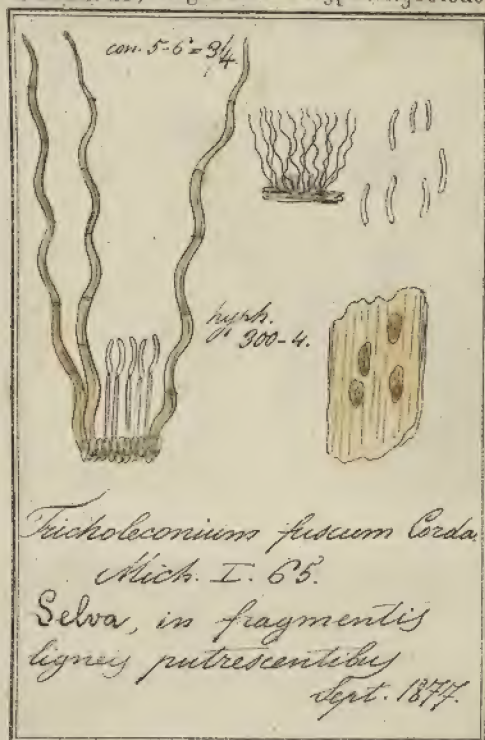 con. 5-6 = 3/4
hyph.
300-4.
Tricholeconium fuscum Corda.
Mich. I. 65.
Selva, in fragmentis
ligneis putrescentibus
Sept. 1877.